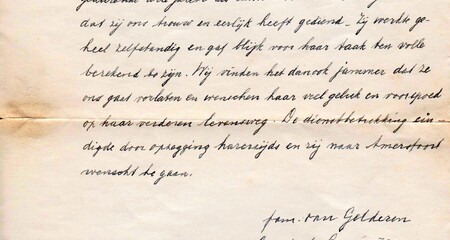 dat zij ons trouw en eerlijk heeft gediend. Zij werkte ge-
heel zelfstandig en gaf blijk voor haar taak ten volle
berekend te zijn. Wij vinden het dan ook jammer dat ze
ons gaat verlaten en wenschen haar veel geluk en voorspoed
op haar verderen levensweg. De dienstbetrekking ein-
digde door opzegging harerzijds en zij naar Amersfoort
wenscht te gaan.
fam. van Golderen